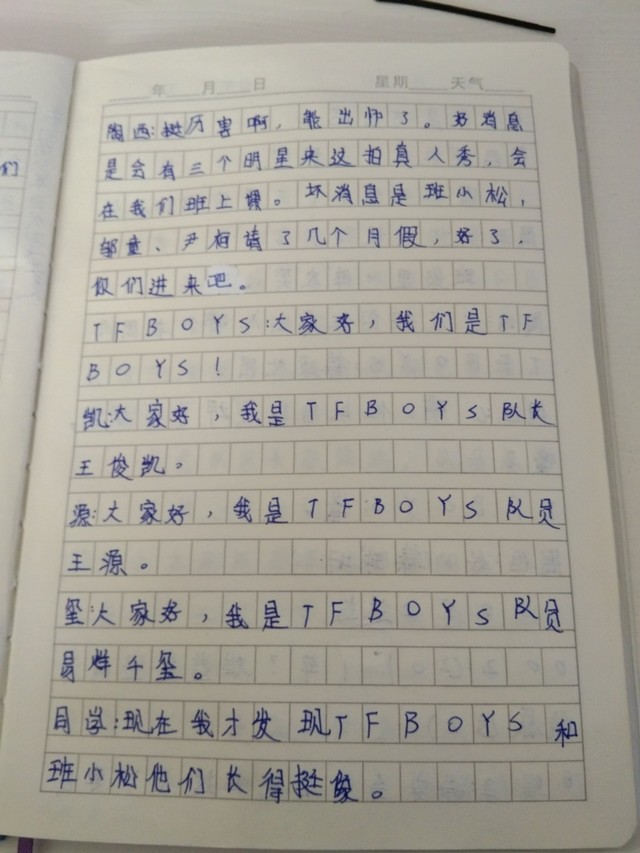 年 月 日 星期 天气
陶西:挺厉害啊,能出师了。好消息
是会有三个明星来这拍真人秀,会
在我们班上课。坏消息是班小松,
邬童、尹柯请了几个月假,好了,
你们进来吧。
TFBOYS:大家好,我们是TF
BOYS!
凯:大家好,我是TFBOYS队长
王俊凯。
源:大家好,我是TFBOYS队员
王源。
玺:大家好,我是TFBOYS队员
易烊千玺。
同学:现在我才发现TFBOYS和
班小松他们长得挺像。
们